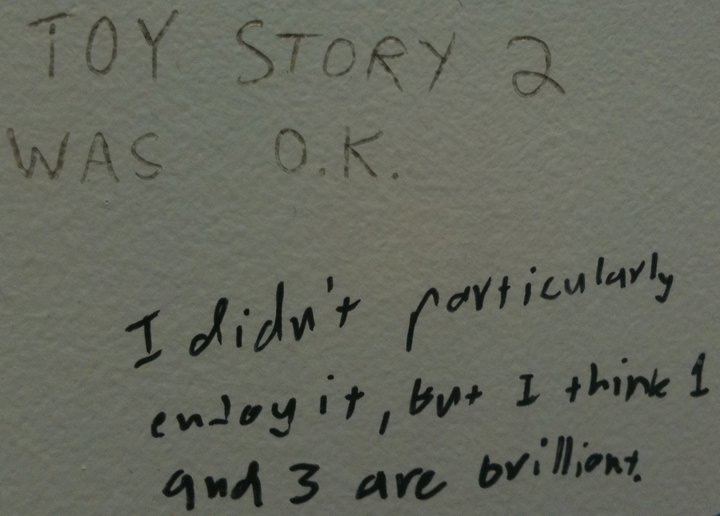 TOY STORY 2
WAS O.K.
I didn't particularly
enjoy it, but I think 1
and 3 are brilliant.